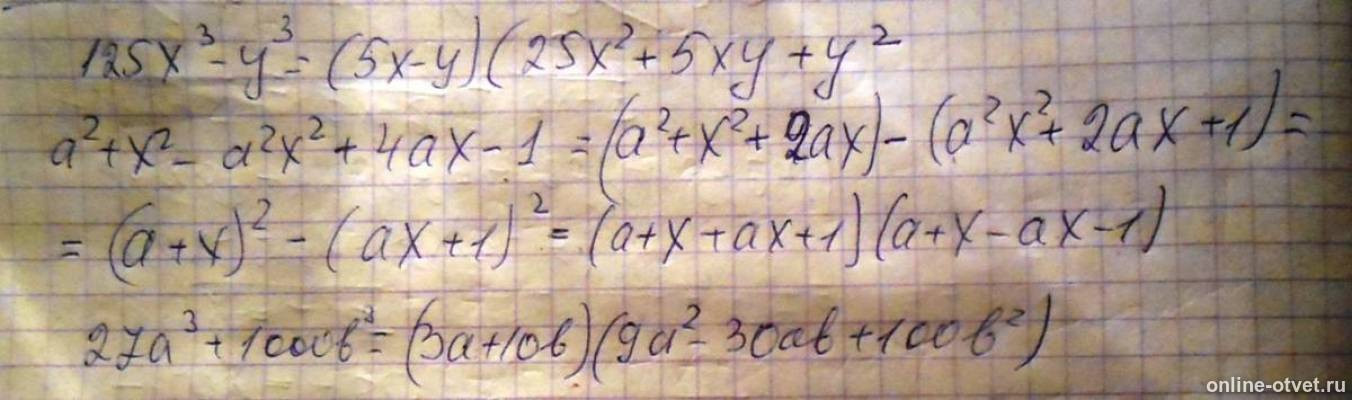 125x³-y³=(5x-y)(25x²+5xy+y²
a²+x²-a²x²+4ax-1=(a²+x²+2ax)-(a²x²+2ax+1)=
=(a+x)²-(ax+1)²=(a+x+ax+1)(a+x-ax-1)
27a³+1000b³=(3a+10b)(9a²-30ab+100b²)
online-otvet.ru